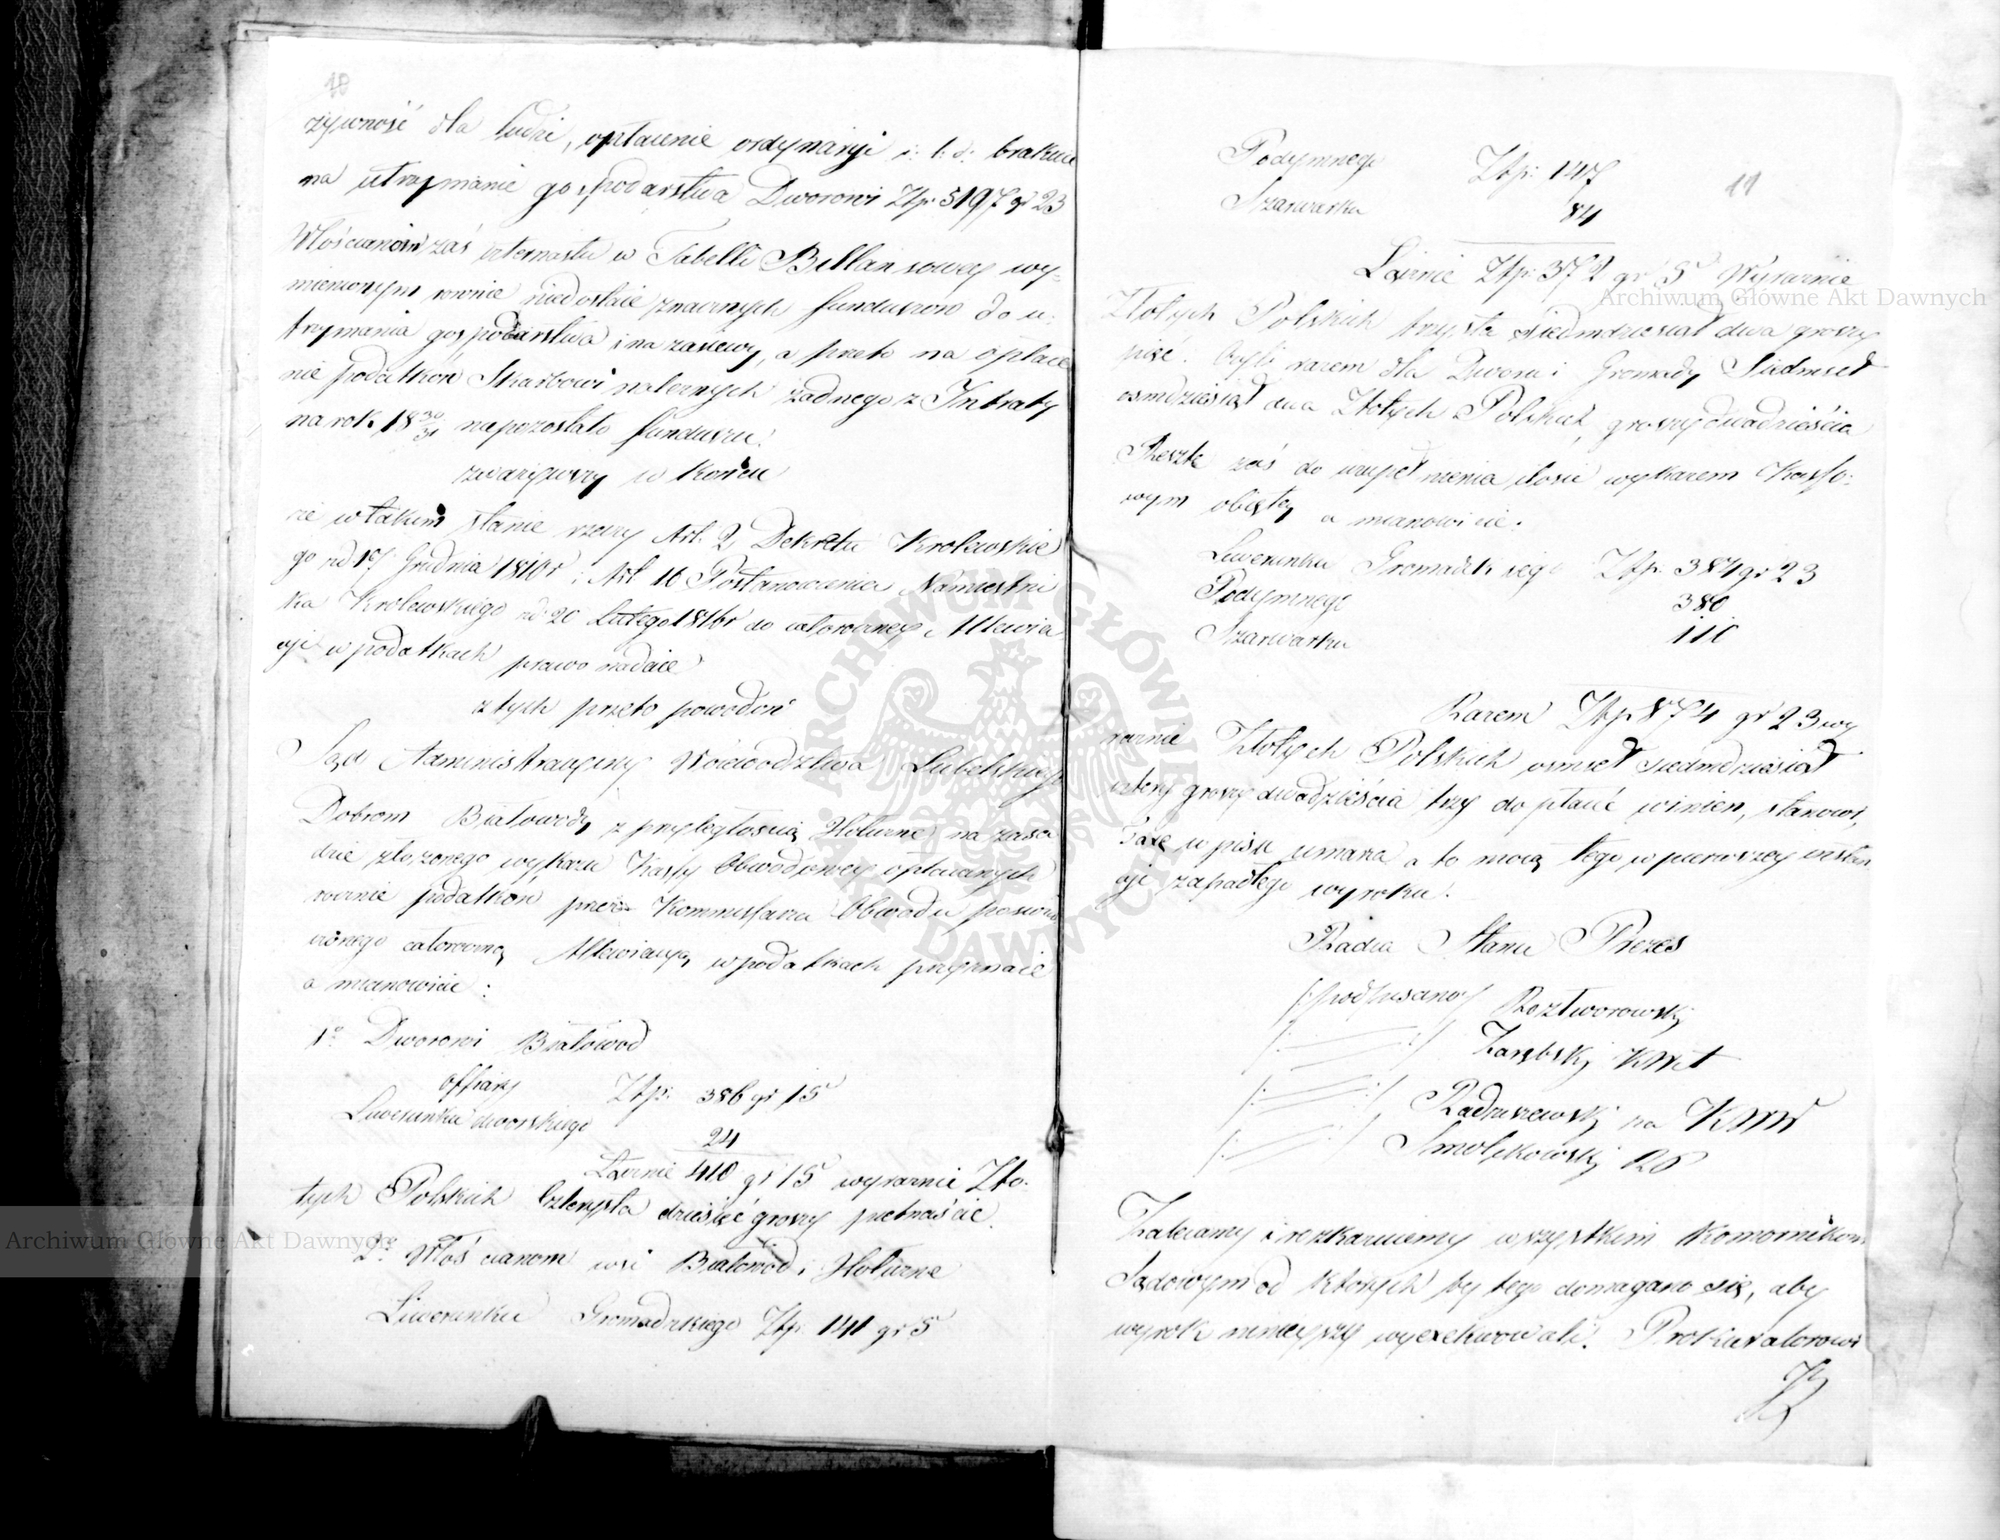 10
żywność dla ludzi, opłacenie ordynaryi i: t: d: brakuie
na utrzymanie gospodarstwa Dworowi Złp: 5197 gr 23
Włościanom zaś czternastu w Tabelli Billansowey wy-
mienionym równie niedostaie znacznych funduszow do u-
trzymania gospodarstwa i na zasiewy, a przeto na opłace
nie podatków Skarbowi należnych żadnego z Intraty
na rok 18 30/31 niepozostało funduszu.
zważywszy w końcu
że w takim stanie rzeczy Art: 2 Dekretu Krolewskie
go od 19 Grudnia 1810r i Art 16 Postanowienia Namiestni
ka Krolewskiego od 20 Lutego 1816r do całoroczney Allewia
cyi w podatkach prawo nadaie
z tych przeto powodów
Sąd Administracyiny Woiewództwa Lubelskiego
Dobrom Białowody z przyległością Hołużne na zasa
dzie złożonego wykazu Kassy Obwodowey opłacanych
rocznie podatków przez Kommissarza Obwodu poświad
czonego całoroczną Allewiacyą w podatkach przyznaie
a mianowicie:
1o Dworowi Białowod
offiary Złp: 386 gr 15
Liwerunku dworskiego 24
Łącznie 410 gr 15 wyraznie Zło-
tych Polskich Czterysta dziesięć groszy piętnaście.
2o Włościanom wsi Białowod i Hołużne
Liwerunku Gromadzkiego Złp: 141 gr 5
11
Podymnego Złp: 147
Szarwarku 84
Łącznie Złp: 372 gr 5 Wyraznie
Złotych Polskich trzysta siedmdziesiat dwa groszy
pięć. Czyli razem dla Dworu i Gromady Siedmset
osmdziesiąt dwa Złotych Polskich, groszy dwadzieścia
Resztę zaś do uzupełnienia ilości wykazem Kasso-
wym obiętey a mianowicie:
Liwerunku Gromadzkiego Złp: 384 gr 23
Podymnego 380
Szarwarku 110
Razem Złp 874 gr 23 wy
raznie Złotych Polskich osmset siedmdziesiąt
cztery groszy dwadzieścia trzy dopłacić winien, stanowi,
Taxę wpisu umarza a to mocą tego w pierwszey instan
cyi zapadłego wyroku.
Radca Stanu Prezes
/:podpisano/ Roztworowski
/: :/ Zarębski KWL
/: :/ Radziszewski na KWW
/: :/ Smolikowski
Zalecamy i rozkazuiemy wszystkim Komornikom
Sądowym od których by tego domagano się, aby
wyrok nineyszy wyexekwowali. Prokuratorowi
Archiwum Główne Akt Dawnych
Archiwum Główne Akt Dawnych
ARCHIWUM GŁÓWNE AKT DAWNYCH